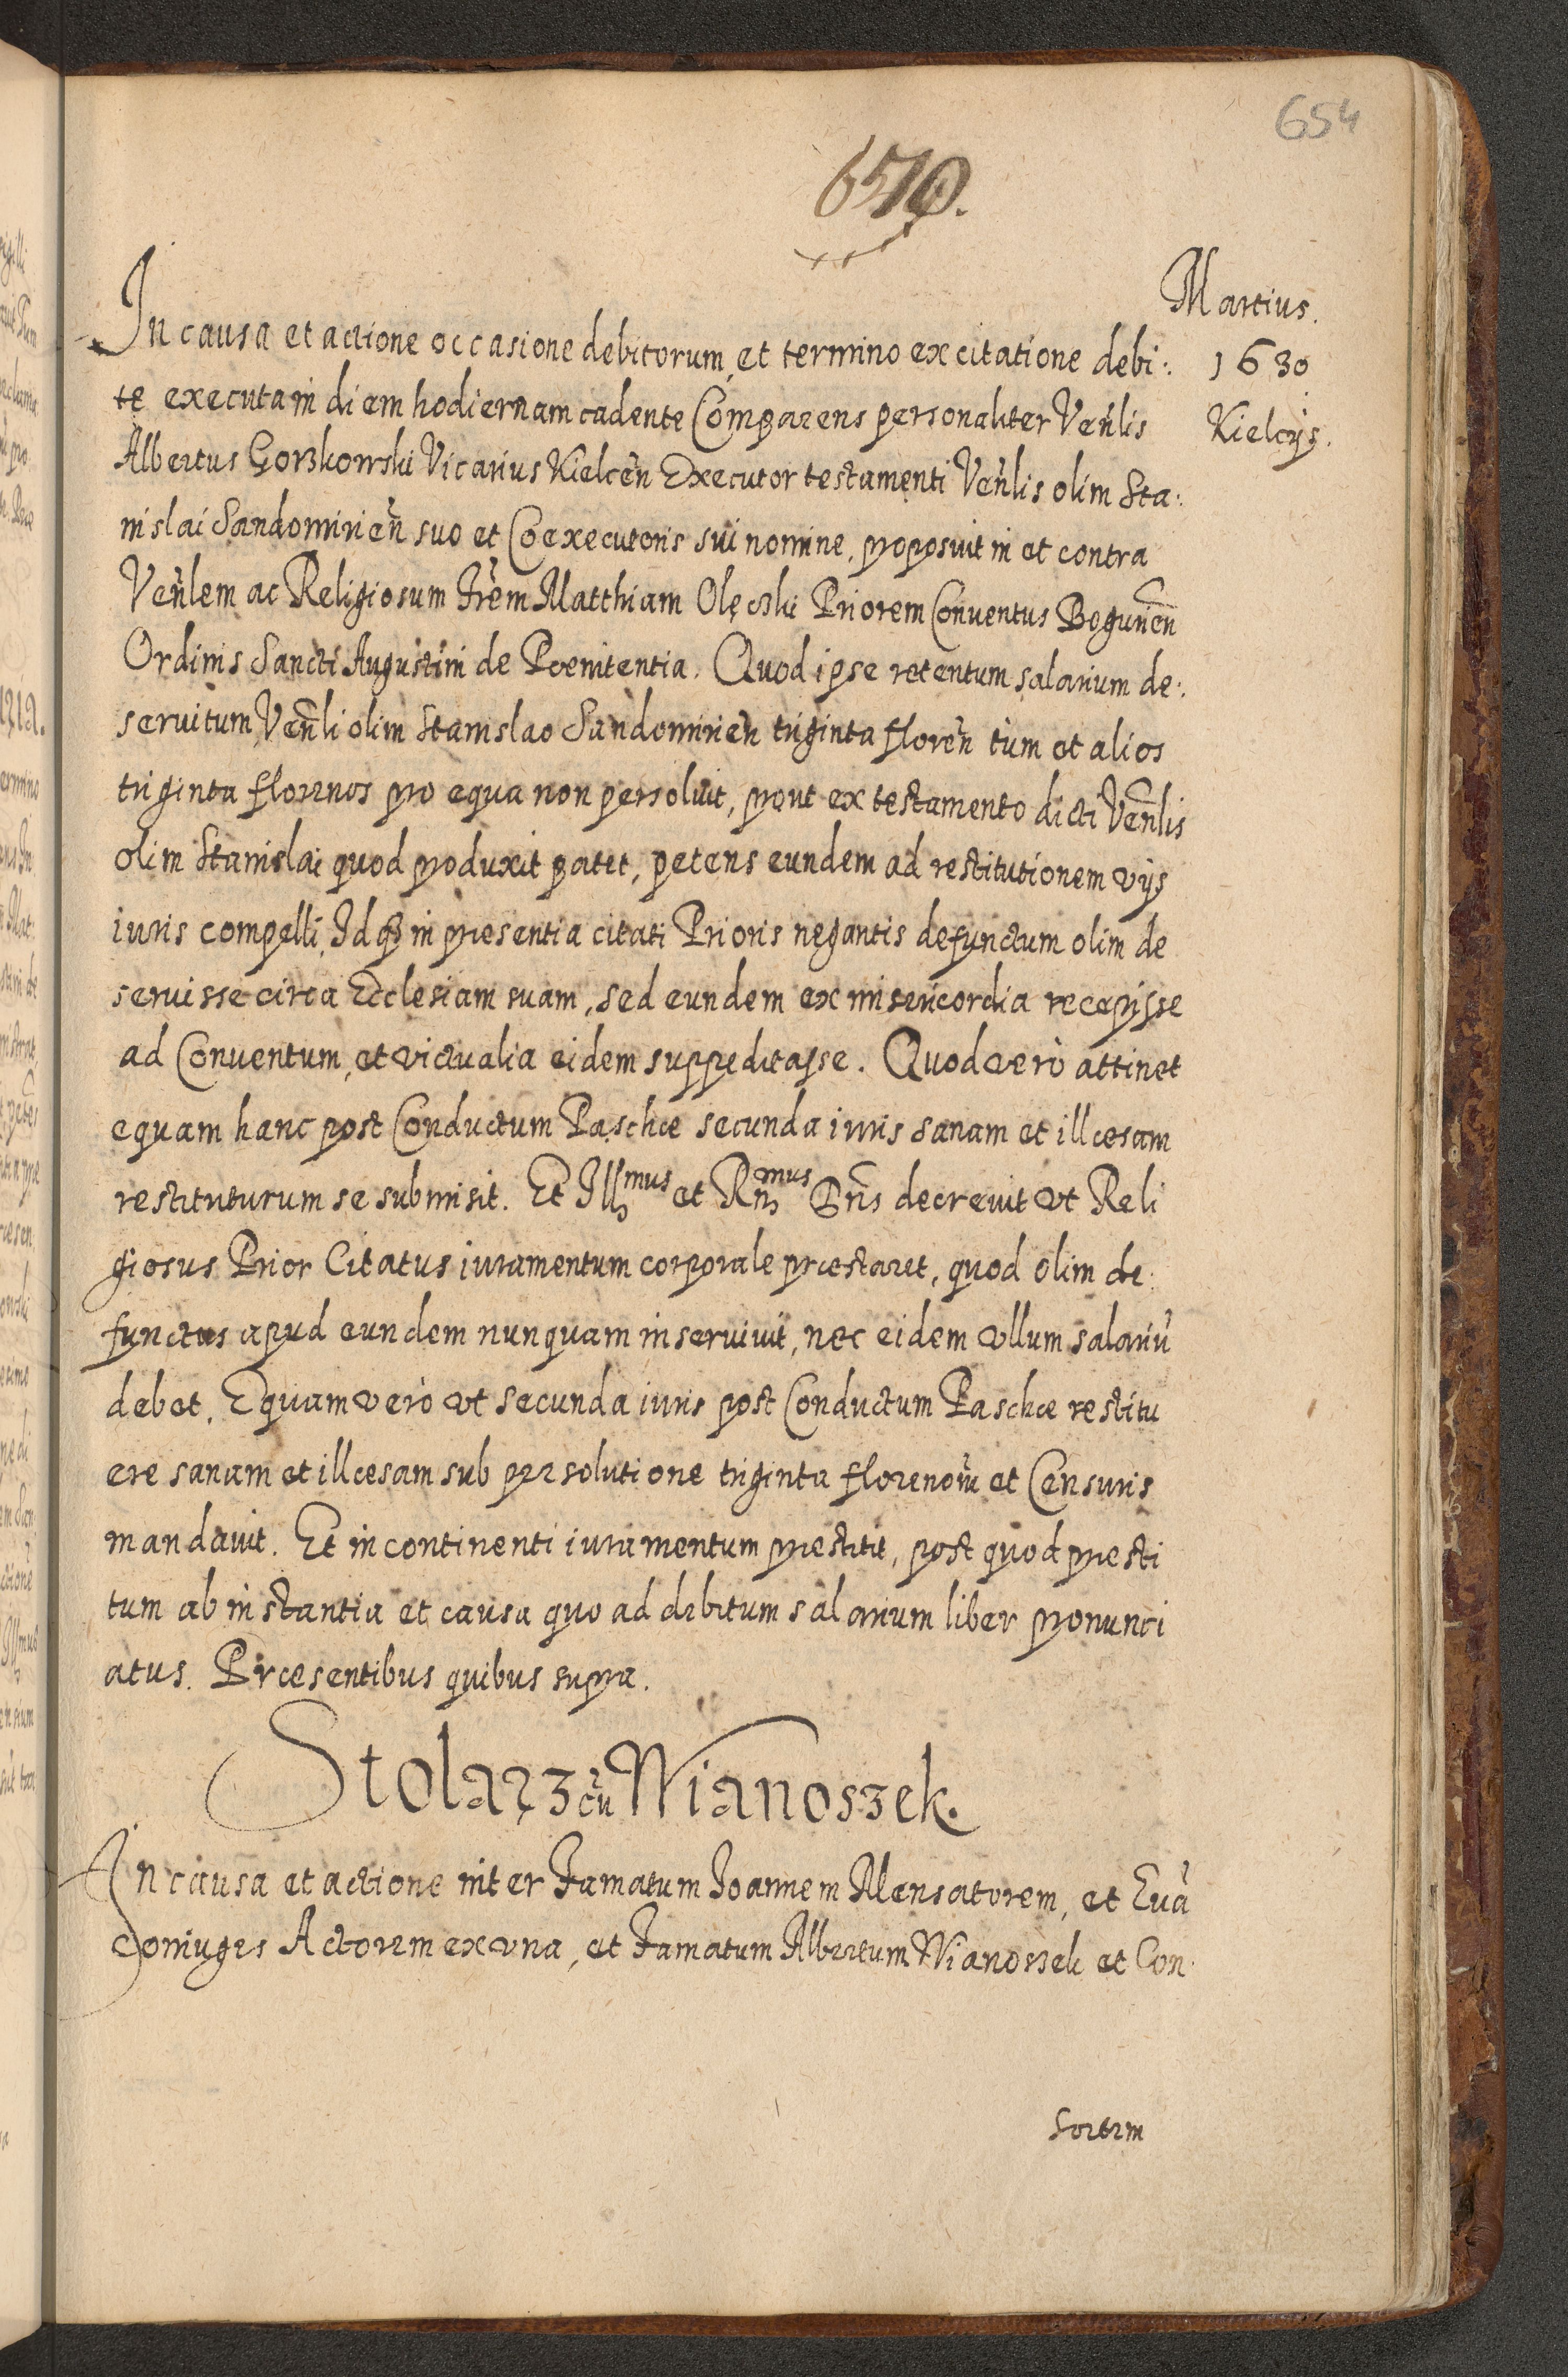 654
Martius.
1630
Kielcijs.
In causa et actione occasione debitorum, et termino ex citatione debi:
te executa in diem hodiernam cadente Comparens personaliter Venlis
Albertus Gorzkowski Vicarius Kielcen Executor testamenti Venlis olim Sta:
nislai Sandomirien suo et Coexecutoris sui nomine, proposuit in et contra
Venlem ac Religiosum Frem Matthiam Olęcski Priorem Conventus Bogunen
Ordinis Sancti Augustini de Poenitentia. Quod ipse retentum salarium de:
servitum, Venli olim Stanislao Sandomirien triginta floren tum et alios
triginta florenos pro equa non persoluit, prout ex testamento dicti Venlis
olim Stanislai quod produxit patet, petens eundem ad restitutionem vijs
iuris compelli, Idq3 in presentia citati Prioris negantis defunctum olim de
seruisse circa Ecclesiam suam, sed eundem ex misericordia recepisse
ad Conuentum, et victualia eidem suppeditasse. Quod vero attinet
equam hanc post Conductum Paschæ secunda iuris sanam et illæsam
restituturum se submisit. Et Ill3mus et Rn3mus Dns decrevit vt Reli
giosus Prior Citatus iuramentum corporale præstaret, quod olim de:
functus apud eundem nunquam inserviuit, nec eidem vllum salariu
debet. Equam vero vt secunda iuris post Conductum Paschæ restitu
ere sanam et illæsam sub persolutione triginta florenoru et Censuris
mandauit. Et incontinenti iuramentum prestitit, post quod presti
tum ab instantia et causa quo ad debitum salarium liber pronunci
atus. Præsentibus quibus supra.
Stolarz cu Wianoszek.
In causa et actione inter Famatum Joannem Mensatorem, et Eua
Coniuges Actorem ex vna, et Famatum Albertum Wianoszek et Con:
sortem